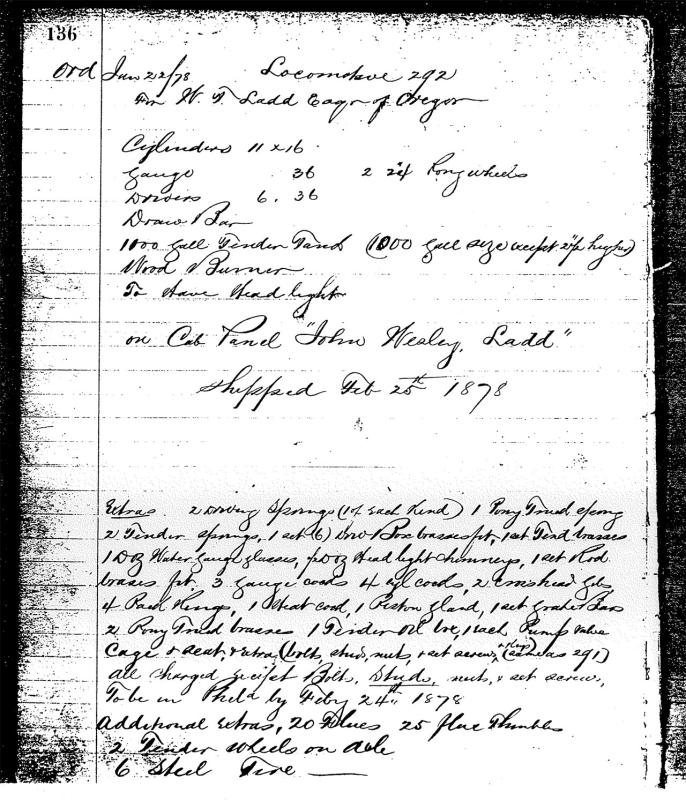 136
Ord Jan 22/78 Locomotive 292
For W. S. Ladd Esqr of Oregon
Cylinders 11 x 16
Gauge 36 2 24 Pony wheels
Drivers 6. 36
Draw Bar
1000 Gall Tender Tank (1000 Gall size except 2" higher)
Wood Burner
To Have Head light
on Cab Panel "John Wesley, Ladd"
Shipped Feb 25th 1878
Extras 2 Driving Springs (1 of Each Kind) 1 Pony Truck Spring
2 Tender Springs, 1 set (6) Driv Box brasses, 1 set Tend brasses
1 Doz Water Gauge glasses, Doz Head light chimneys, 1 set Rod
brasses 3 Gauge cocks 4 cyl cocks, 2 Crosshead Gibs
4 Pack Rings, 1 Heat cock, 1 Piston Gland, 1 set Grate Bars
2 Pony Truck brasses 1 Tender Oil Box, 1 each Pump Valve
Cage & Seat, & Extra (bolts, studs, nuts, & set screws, & Keys) (same as 291)
all charged except Bolts, Studs, nuts, & set screws,
To be in Phila by Feby 24th 1878
Additional Extras, 20 Flues 25 flue Thimbles
2 Tender wheels on axle
6 Steel Tire